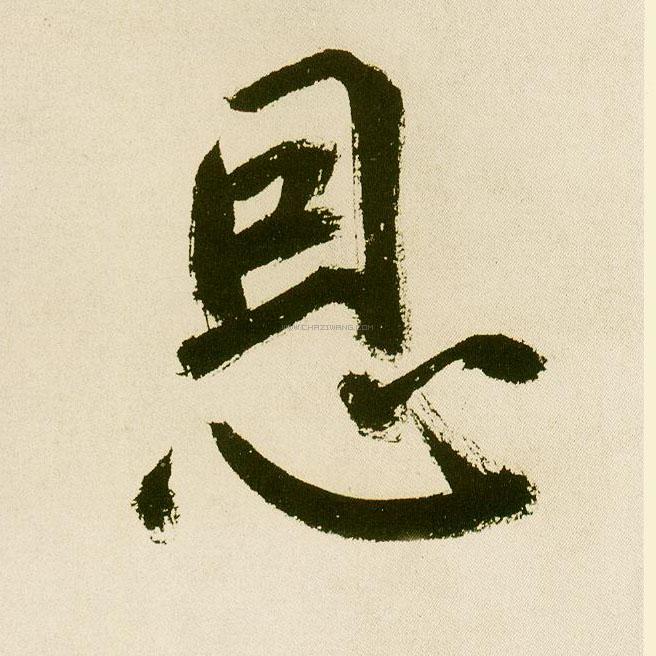 恩
WWW.CHAZIWANG.COM